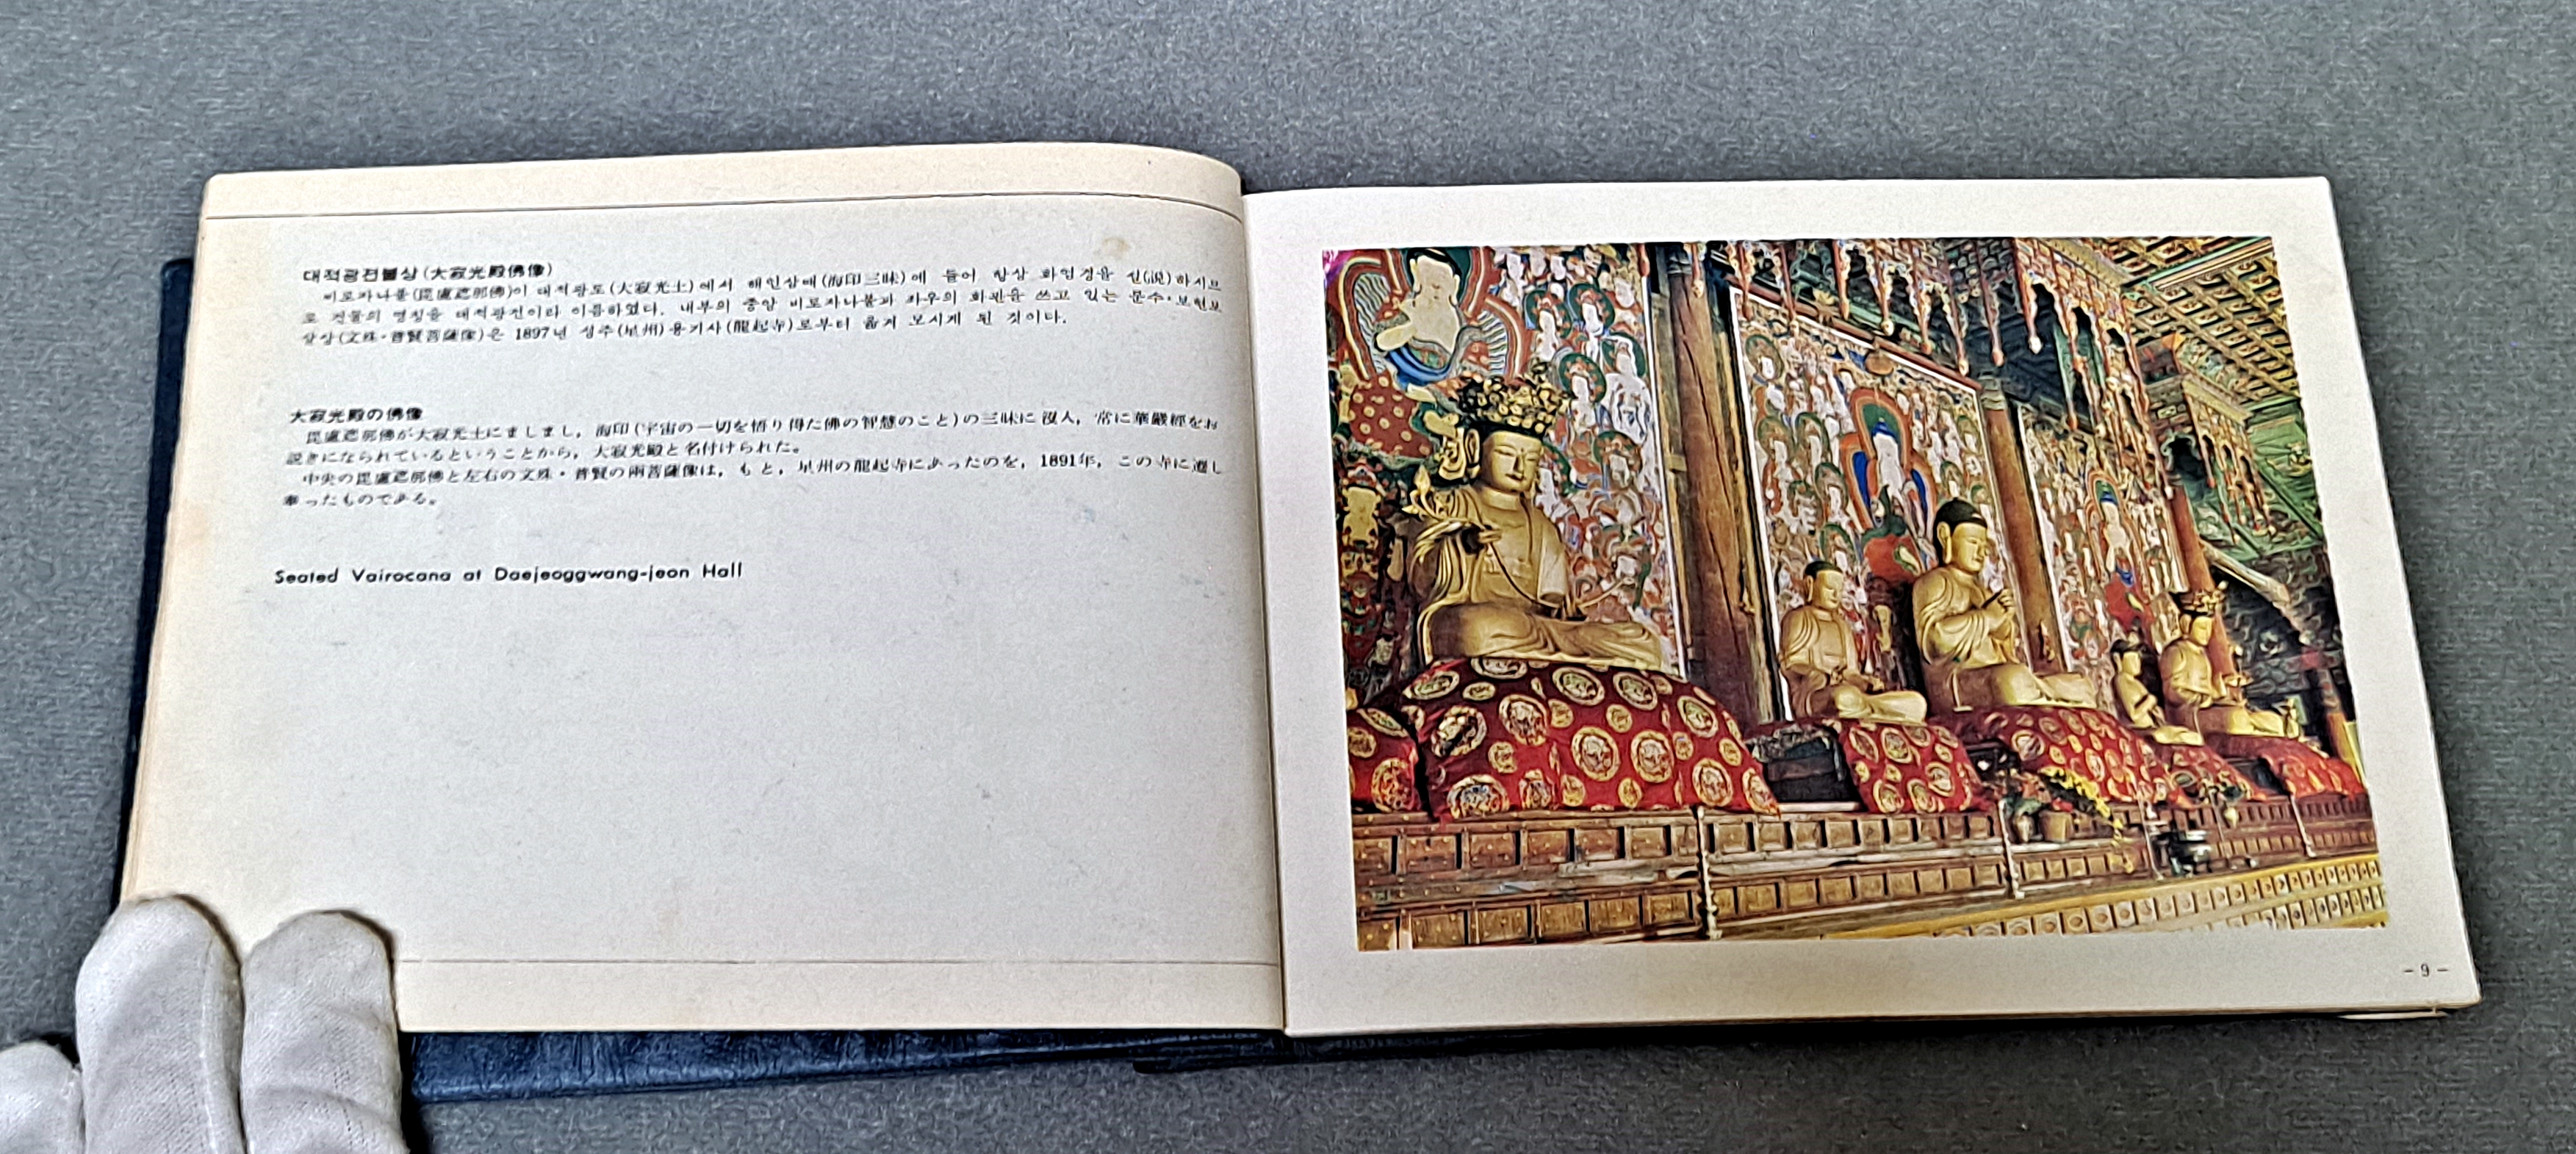 대적광전불상(大寂光殿佛像)
비로자나불(毘盧遮那佛)이 대적광토(大寂光土)에서 해인삼매(海印三昧)에 들어 항상 화엄경을 설(説)하시므
로 건물의 명칭을 대적광전이라 이름하였다. 내부의 중앙 비로자나불과 좌우의 화관을 쓰고 있는 문수·보현보
살상(文殊·普賢菩薩像)은 1897년 성주(星州)용기사(龍起寺)로부터 옮겨 모시게 된 것이다.
大寂光殿の佛像
毘盧遮那佛が大寂光土にましまし，海印(宇宙の一切を悟り得た佛の智慧のこと)の三昧に沒入，常に華嚴經をお
説きになられているということから，大寂光殿と名付けられた。
中央の毘盧遮那佛と左右の文殊・普賢の兩菩薩像は，もと，星州の龍起寺にあったのを，1891年，この寺に遷し
奉ったものである。
Seated Vairocana at Daejeoggwang-jeon Hall
－9－